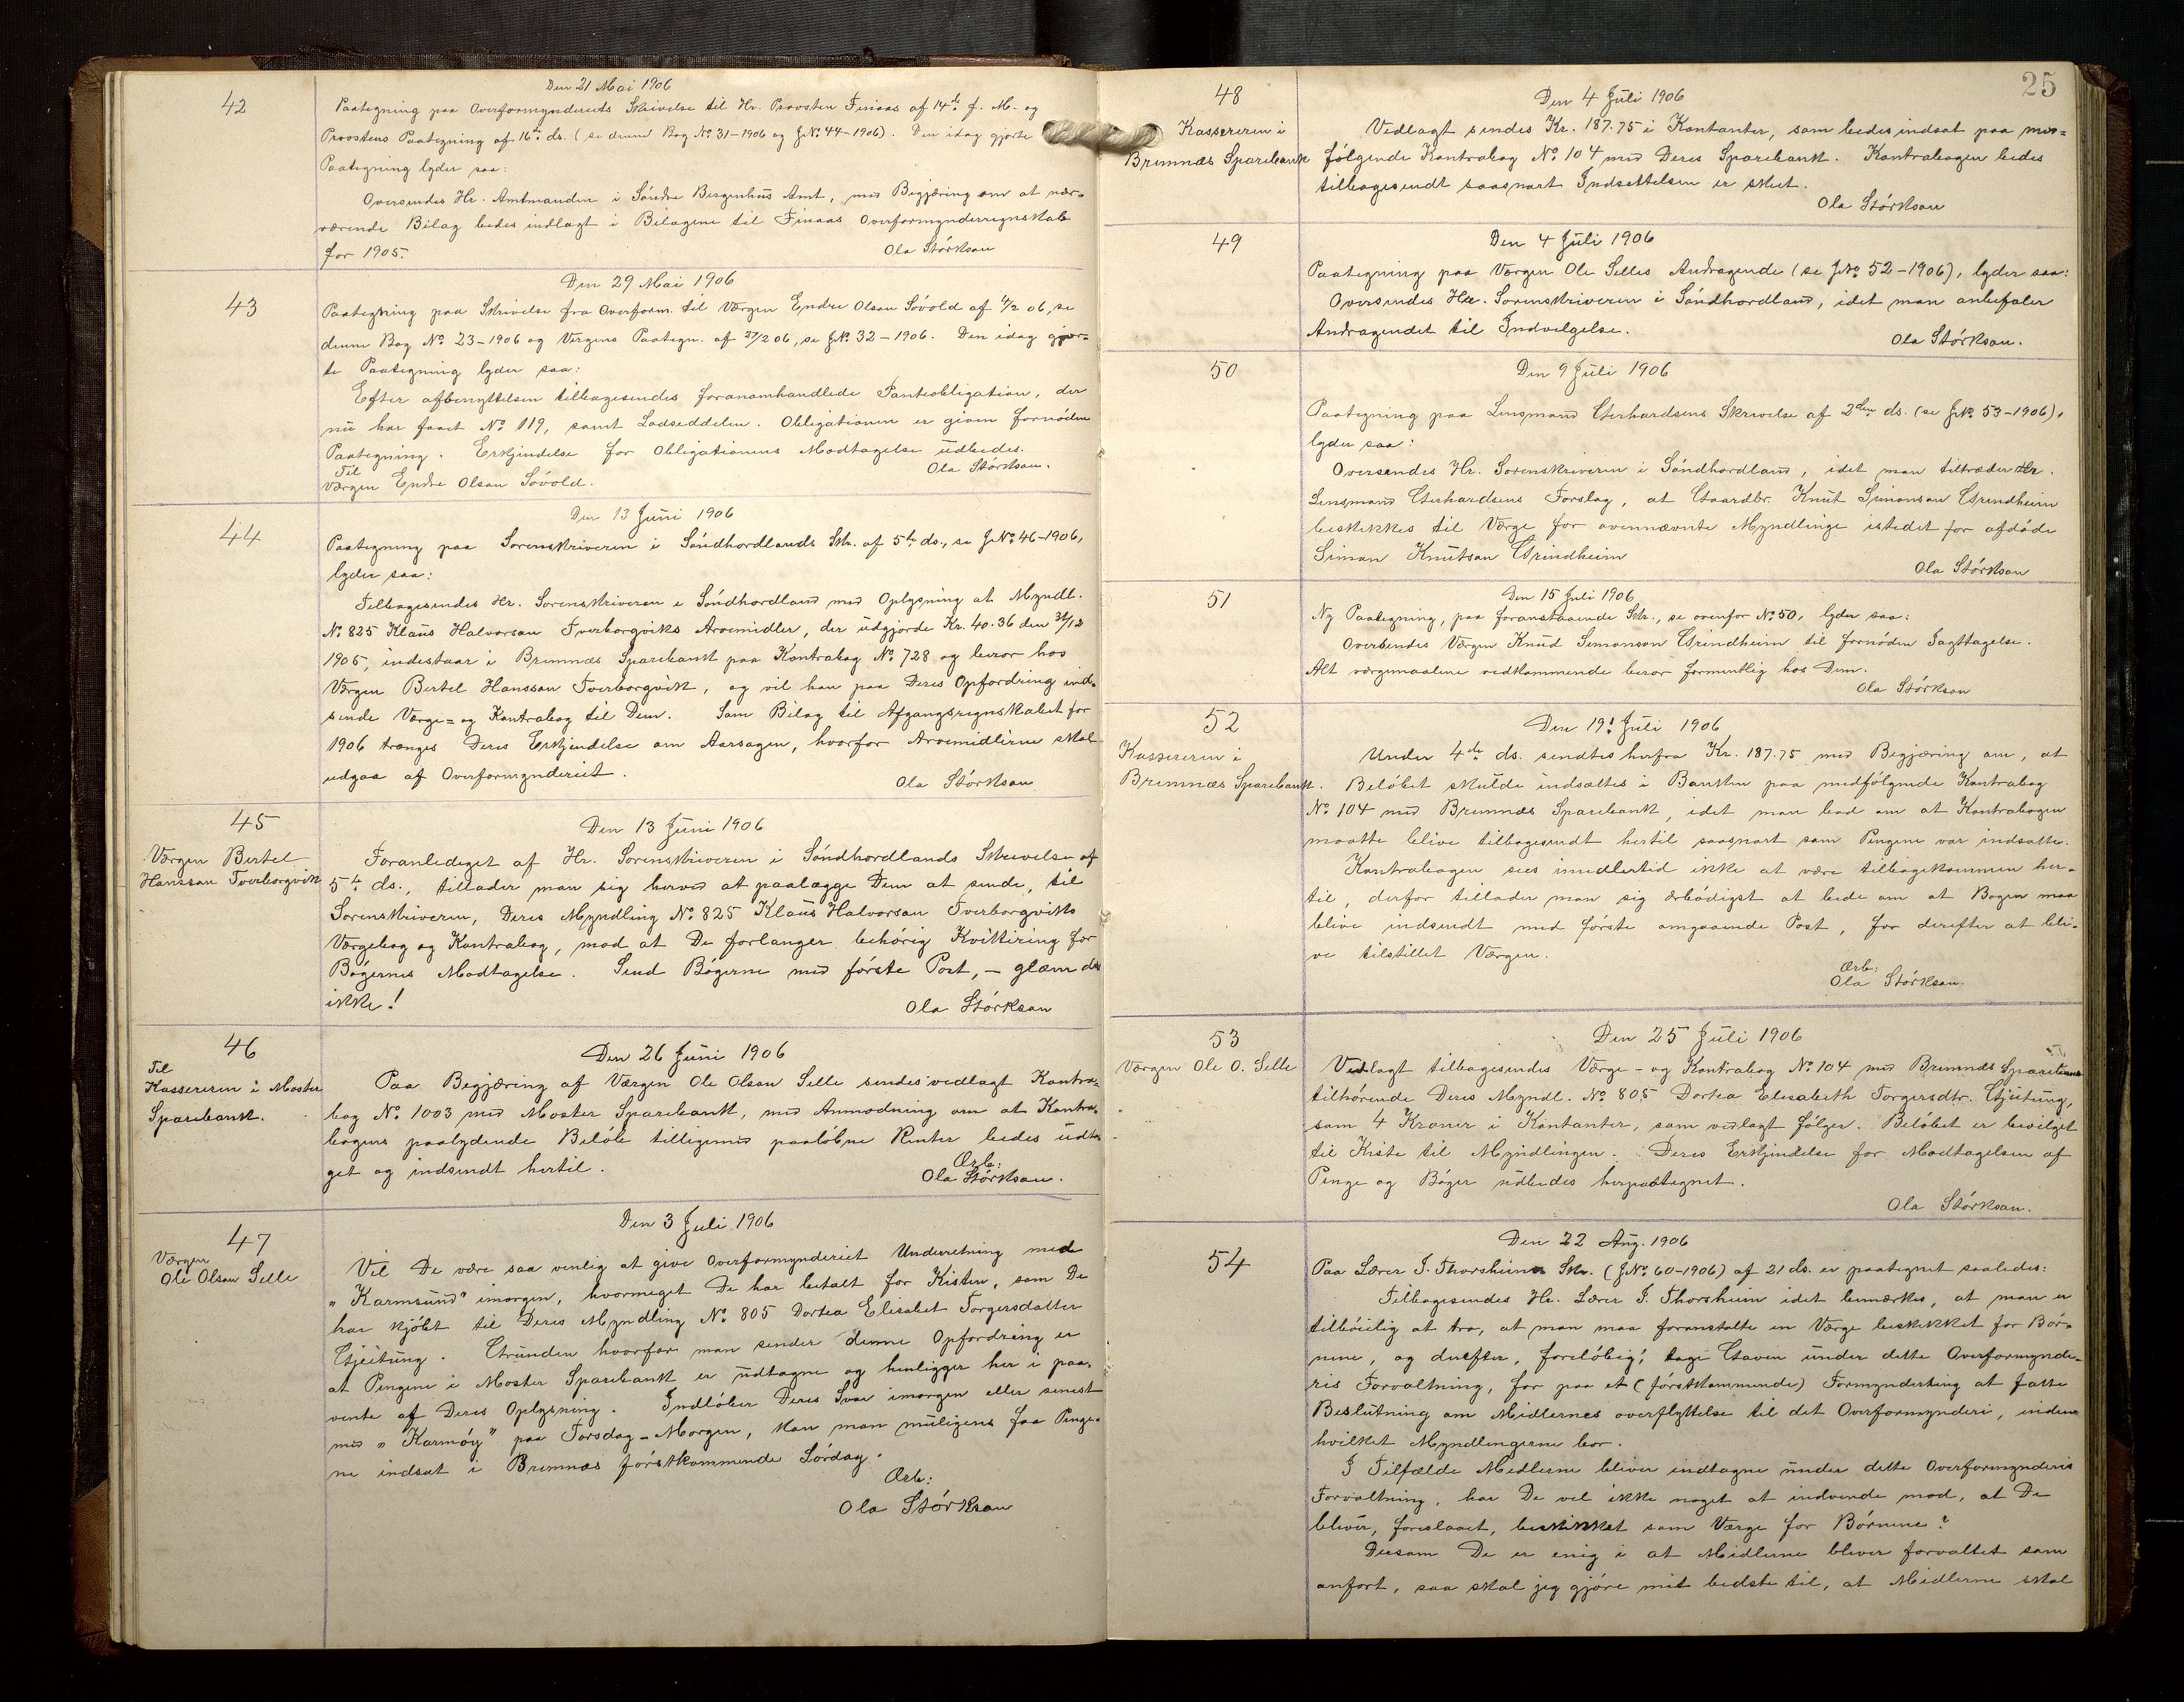 42
Den 21 Mai 1906
Paategning paa Overformynderiets Skrivelse til Hr. Provsten Finaas af 14de f. M. og
Provstens Paategning af 16de ds. (se denne Bog No 31-1906 og JNo 44-1906). Den idag gjorte
Paategning lyder saa:
Oversendes Hr. Amtmanden i Söndre Bergenhus Amt, med Begjæring om at nær-
værende Bilag bedes indlagt i Bilagene til Finaas Overformynderregnskab
for 1905.
Ola Störkson
43
Den 29 Mai 1906
Paategning paa Skrivelse fra Overform. til Værgen Endre Olson Sövold af 4/2 06, se
denne Bog No 23-1906 og Vergens Paategn. af 27/2 06, se JNo 32-1906. Den idag gjor-
te Paategning lyder saa:
Efter afbenyttelsen tilbagesendes foranomhandlede Panteobligation, der
nu har faaet No 119, samt Ladseddelen. Obligationen er given fornöden
Paategning. Erkjendelse for Obligationens Modtagelse udbedes.
Ola Störkson.
Til
Værgen Endre Olson Sövold.
44
Den 13 Juni 1906
Paategning paa Sorenskriveren i Söndhordlands Skr. af 5te ds., se JNo 46-1906,
lyder saa:
Tilbagesendes Hr. Sorenskriveren i Söndhordland med Oplysning at Myndl.
No 825 Klaus Halvorson Tverborgviks Arvemidler, der udgjorde Kr. 40.36 den 31/12
1905, indestaar i Bremnæs Sparebank paa Kontrabog No 728 og beror hos
Værgen Bertel Hansson Tverborgvik, og vil han paa Deres Opfordring ind-
sende Værge= og Kontrabog til Dem. Som Bilag til Afgangsregnskabet for
1906 trænges Deres Erkjendelse om Aarsagen, hvorfor Arvemidlerne skal
udgaa af Overformynderiet.
Ola Störkson
45
Værgen Bertel
Hansson Tverborgvik
Den 13 Juni 1906
Foranlediget af Hr. Sorenskriveren i Söndhordlands Skrivelse af
5te ds., tillader man sig herved at paalægge Dem at sende, til
Sorenskriveren, Deres Myndling No 825 Klaus Halvorson Tverborgviks
Værgebog og Kontrabog, mod at De forlanger behörig Kvittering for
Bögernes Modtagelse. Send Bögerne med förste Post, - glæm det
ikke!
Ola Störkson
46
Til
Kassereren i Moster
Sparebank.
Den 26 Juni 1906
Paa Begjæring af Værgen Ole Olson Selle sendes vedlagt Kontra-
bog No 1003 med Moster Sparebank, med Anmodning om at Kontra-
bogens paalydende Belöb tilligemed paalöbne Renter bedes udta-
get og indsendt hertil.
Ærb:
Ola Störkson.
47
Værgen
Ole Olson Selle
Den 3 Juli 1906
Vil De være saa venlig at give Overformynderiet Underretning med
"Karmsund" imorgen, hvormeget De har betalt for Kisten, som De
har kjöbt til Deres Myndling No 805 Dortea Elisabet Torgersdatter
Gjeitung. Grunden hvorfor man sender denne Opfordring er
at Pengene i Moster Sparebank er udtagne og henligger her i paa-
vente af Deres Oplysning. Indlöber Deres Svar imorgen eller senest
med "Karmöy" paa Torsdag-Morgen, kan man muligens faa Penge-
ne indsat i Bremnæs förstkommende Lördag.
Ærb:
Ola Störkson
25
48
Kassereren i
Bremnæs Sparebank
Den 4 Juli 1906
Vedlagt sendes Kr. 187.75 i Kontanter, som bedes indsat paa med-
fölgende Kontrabog No 104 med Deres Sparebank. Kontrabogen bedes
tilbagesendt saasnart Indsettelsen er skeet.
Ola Störkson
49
Den 4 Juli 1906
Paategning paa Værgen Ole Selles Andragende (se JNo 52-1906), lyder saa:
Oversendes Hr. Sorenskriveren i Söndhordland, idet man anbefaler
Andragendet til Indvilgelse.
Ola Störkson.
50
Den 9 Juli 1906
Paategning paa Lensmand Gerhardsens Skrivelse af 2den ds. (se JNo 53-1906),
lyder saa:
Oversendes Hr. Sorenskriveren i Söndhordland, idet man tiltræder Hr.
Lensmand Gerhardsens Forslag, at Gaardbr. Knut Simonson Grindheim
beskikkes til Værge for ovennævnte Myndlinge istedet for afdöde
Simon Knutson Grindheim
Ola Störkson
51
Den 15 Juli 1906
Ny Paategning, paa foranstaaende Skr., se ovenfor No 50, lyder saa:
Oversendes Værgen Knud Simonson Grindheim til fornöden Iagttagelse.
Alt værgemaalene vedkommende beror formentlig hos Dem.
Ola Störkson
52
Kassereren i
Bremnæs Sparebank.
Den 19. Juli 1906
Under 4de ds. sendtes herfra Kr. 187.75 med Begjæring om, at
Belöbet skulde indsættes i Banken paa medfölgende Kontrabog
No 104 med Bremnæs Sparebank, idet man bad om at Kontrabogen
maatte blive tilbagesendt hertil saasnart som Pengene var indsatte.
Kontrabogen sees imidlertid ikke at være tilbagekommen her-
til, derfor tillader man sig ærbödigst at bede om at Bogen maa
blive indsendt med förste omgaaende Post, for derefter at bli-
ve tilstillet Værgen.
Ærb:
Ola Störkson.
53
Værgen Ole O. Selle
Den 25 Juli 1906
Vedlagt tilbagesendes Værge- og Kontrabog No 104 med Bremnæs Sparebank
tilhörende Deres Myndl. No 805 Dortea Elisabeth Torgersdtr. Gjeitung,
som 4 Kroner i Kontanter, som vedlagt fölger. Belöbet er bevilget
til Kiste til Myndlingen. Deres Erkjendelse for Modtagelsen af
Penge og Böger udbedes herpaategnet.
Ola Störkson.
54
Den 22 Aug. 1906
Paa Lærer J. Thorsheims Skr. (JNo 60-1906) af 21 ds. er paategnet saaledes:
Tilbagesendes Hr. Lærer J. Thorsheim idet bemærkes, at man er
tilböielig at tro, at man maa foranstalte en Værge beskikket for Bör-
nene, og derefter, forelöbig, tage Gaven under dette Overformynde-
ris Forvaltning, for paa et (förstkommende) Formynderting at fatte
Beslutning om Midlernes overflyttelse til det Overformynderi, inden
hvilket Myndlingerne bor.
I Tilfælde Midlerne bliver indtagne under dette Overformynderis
Forvaltning, har De vel ikke noget at indvende mod, at De
bliver, foreslaaet, beskikket som Værge for Börnene?
Dersom De er enig i at Midlerne bliver forvaltet som
anfört, saa skal jeg gjöre mit bedste til, at Midlerne skal